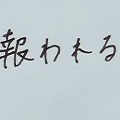 報われる